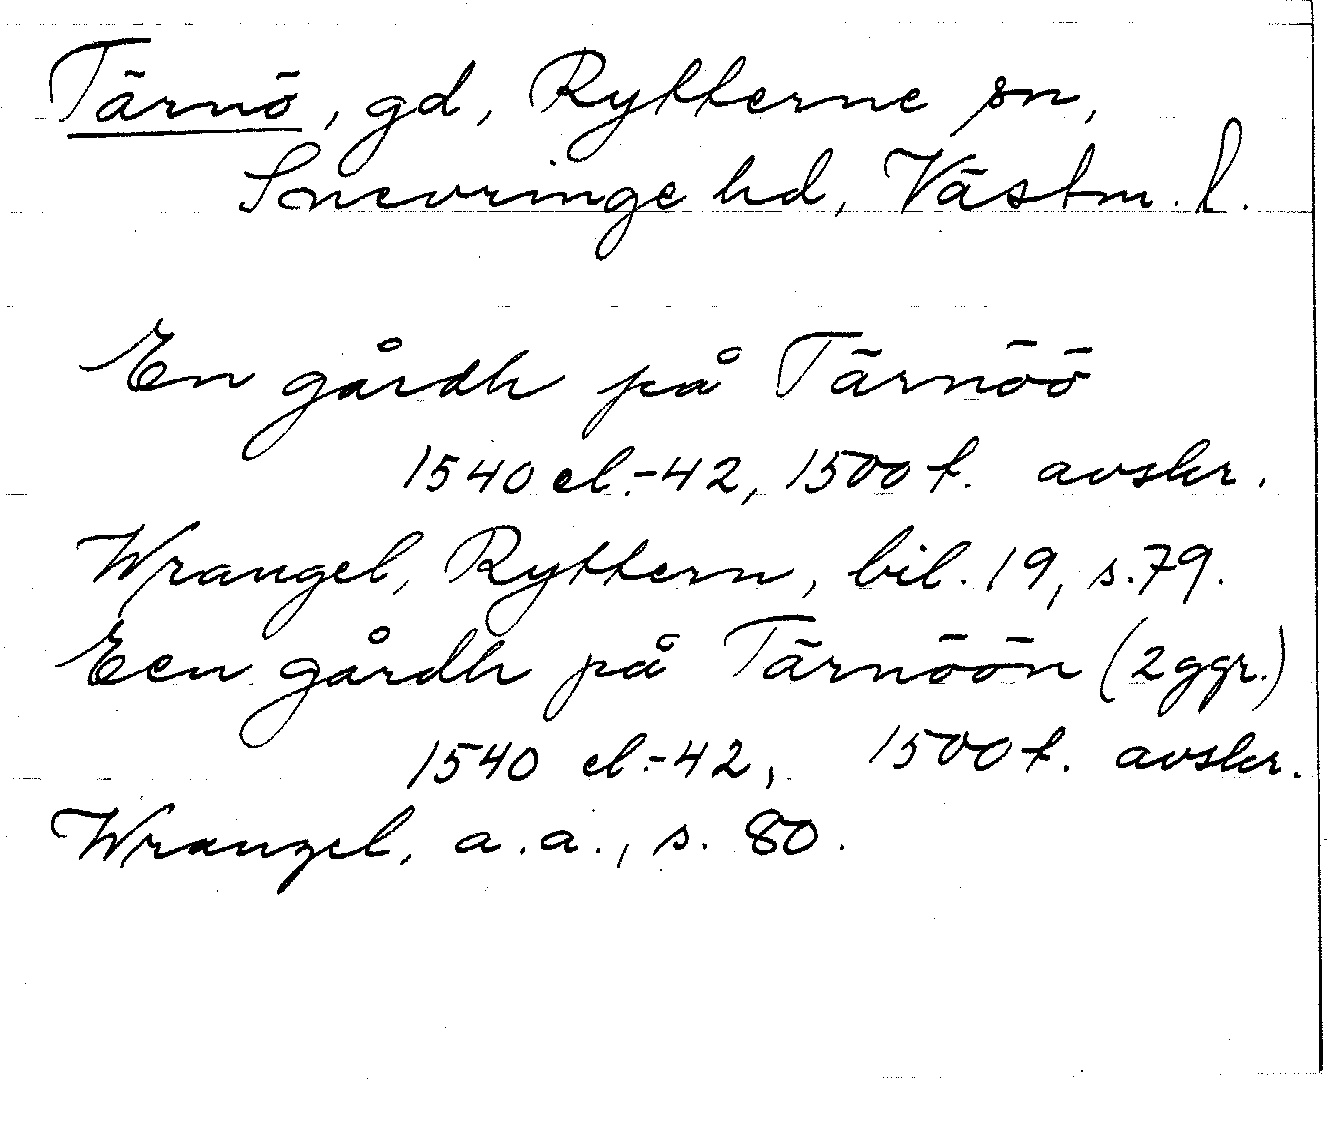 Tärnö, gd, Rytterne sn,
Snevringe hd, Västm. l.
En gårdh på Tärnöö
1540 el.-42, 1500t. avskr.
Wrangel, Ryttern, bil. 19, s.79.
Een gårdh på Tärnöön (2ggr.)
1540 el.-42, 1500t. avskr.
Wrangel, a.a., s. 80.